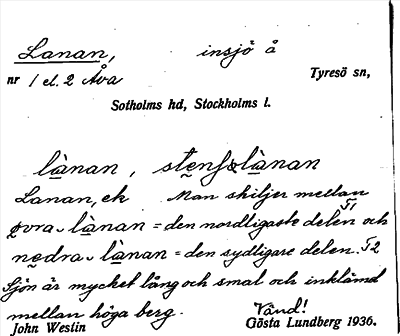 Lanan, insjö å
nr 1 el. 2 Åva Tyresö sn,
Sotholms hd, Stockholms l.
lànan, stensʃølànan
Lanan, ek Man skiljer mellan
øvra-lànan = den nordligaste delen T1 och
nedra-lànan = den sydligare delen. T2
Sjön är mycket lång och smal och inklämd
mellan höga berg. Vänd!
John Westin Gösta Lundberg 1936.